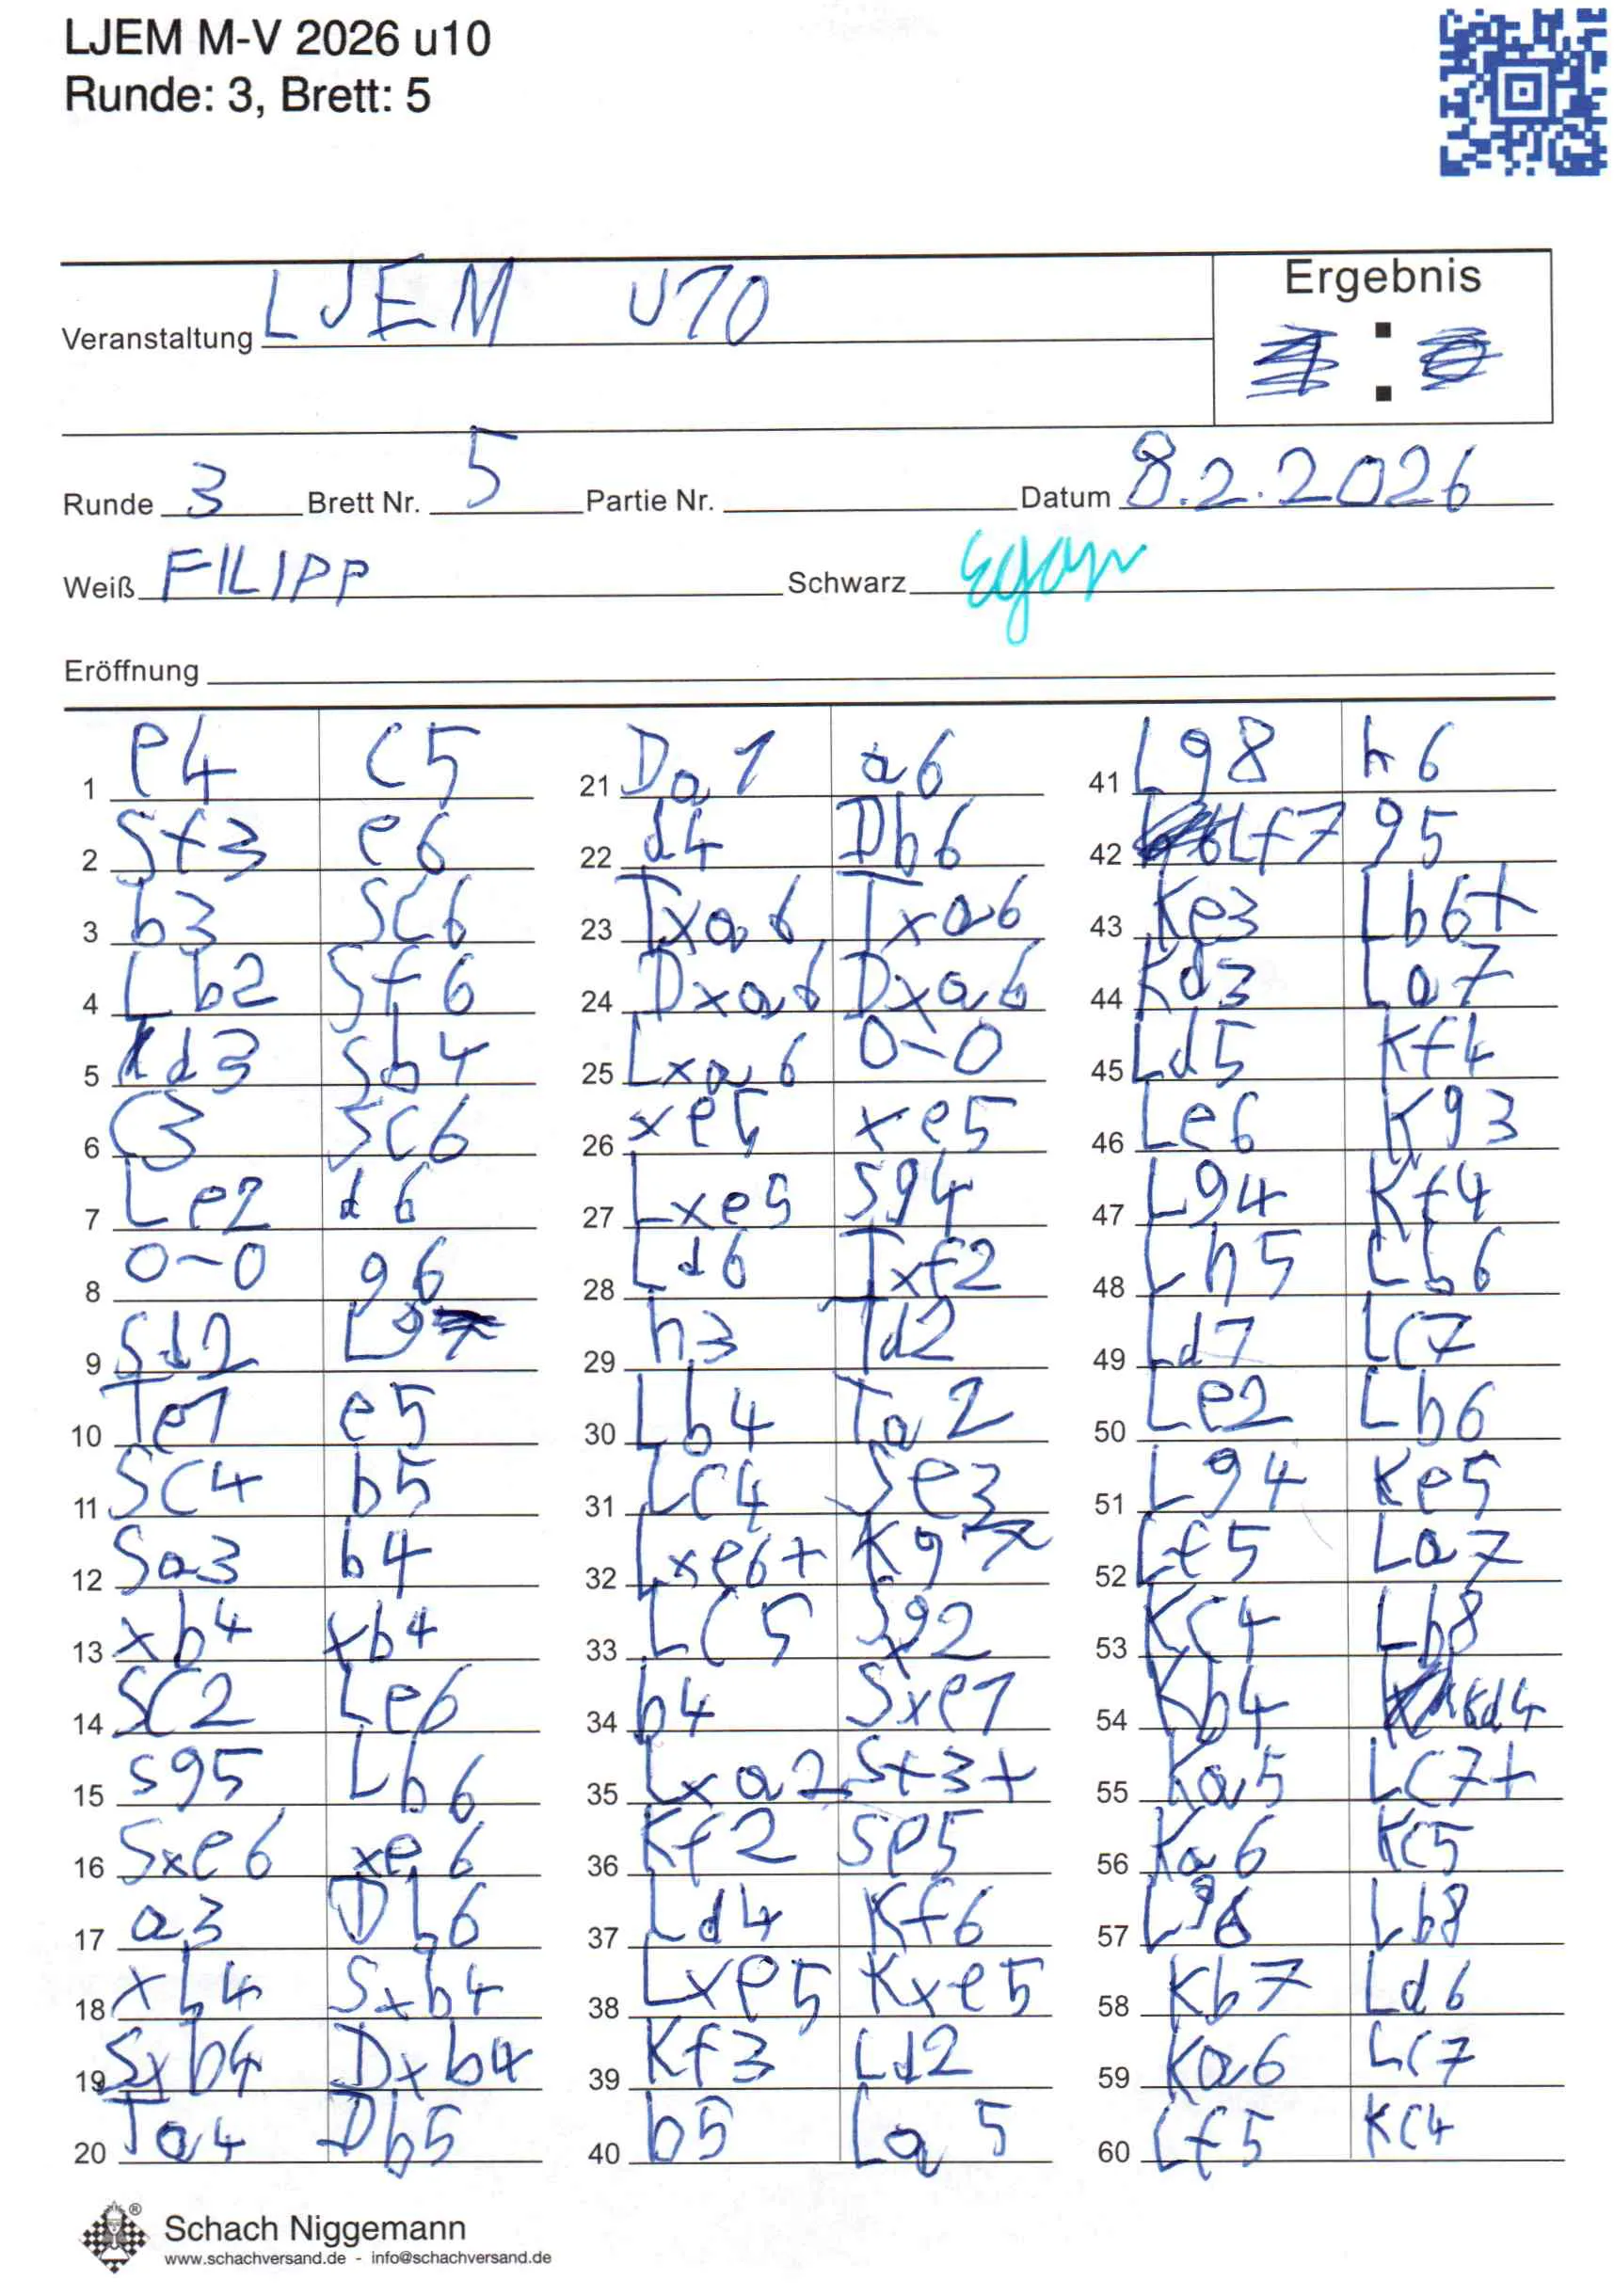 LJEM M-V 2026 u10
Runde: 3, Brett: 5
Veranstaltung LJEM U10
Ergebnis
:
Runde 3 Brett Nr. 5 Partie Nr. Datum 8.2.2026
Weiß FILIPP Schwarz Egon
Eröffnung
1 e4 c5
2 Sf3 e6
3 b3 Sc6
4 Lb2 Sf6
5 Ld3 Sb4
6 C3 Sc6
7 Le2 d6
8 0-0 g6
9 Sd2 Lg7
10 Te1 e5
11 Sc4 b5
12 Sa3 b4
13 xb4 xb4
14 Sc2 Le6
15 Sg5 Lh6
16 Sxe6 xe6
17 a3 Db6
18 xb4 Sxb4
19 Sxb4 Dxb4
20 Ta4 Db5
21 Da1 a6
22 d4 Db6
23 Txa6 Txa6
24 Dxa6 Dxa6
25 Lxa6 0-0
26 xe5 xe5
27 Lxe5 Sg4
28 Ld6 Txf2
29 h3 Td2
30 Lb4 Ta2
31 Lc4 Se3
32 Lxe6+ Kg7
33 Lc5 Sxg2
34 b4 Sxe1
35 Lxa2 Sf3+
36 Kf2 Se5
37 Ld4 Kf6
38 Lxe5 Kxe5
39 Kf3 Ld2
40 b5 La5
41 Lg8 h6
42 Lf7 g5
43 Ke3 Lb6+
44 Kd3 La7
45 Ld5 Kf4
46 Le6 Kg3
47 Lg4 Kf4
48 Lh5 Lb6
49 Ld7 Lc7
50 Le2 Lb6
51 Lg4 Ke5
52 Lf5 La7
53 Kc4 Lb8
54 Kb4 Kd4
55 Ka5 Lc7+
56 Ka6 Kc5
57 Lg6 Lb8
58 Kb7 Ld6
59 Ka6 Lc7
60 Lf5 Kc4
Schach Niggemann
www.schachversand.de - info@schachversand.de